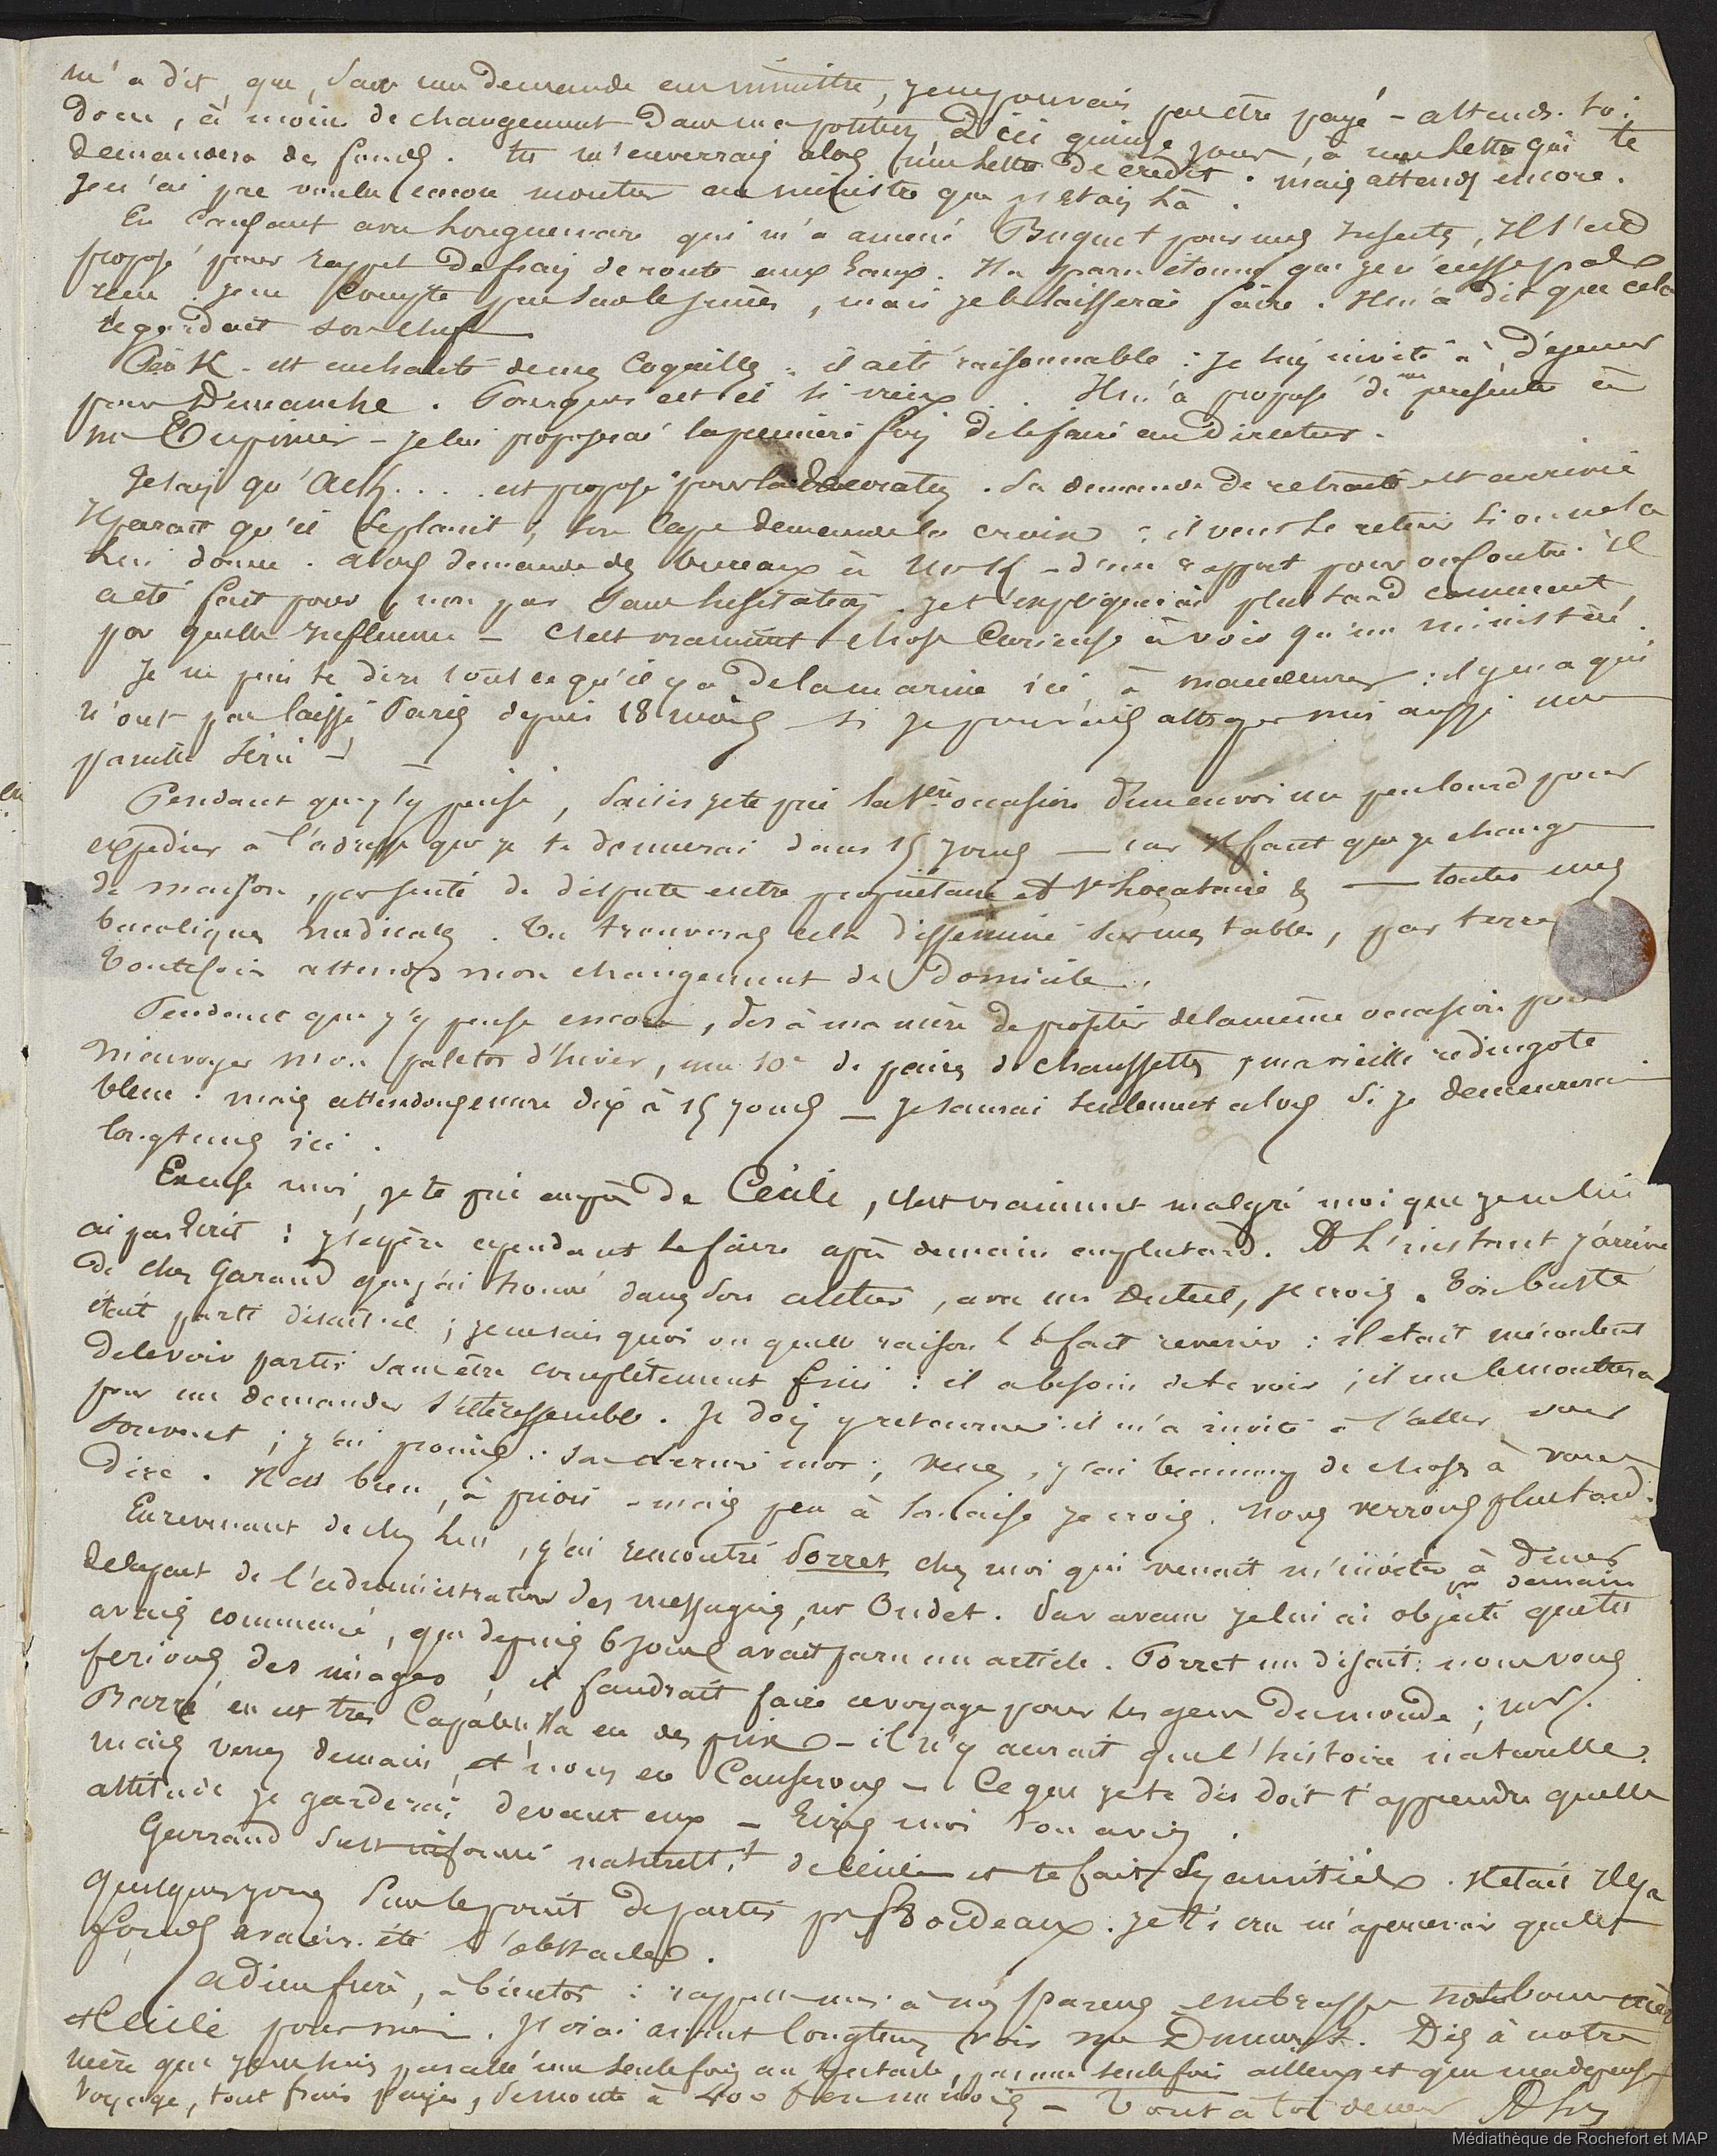 m'a dit, que, sans une demande au ministre, je ne pouvais pas être payé - attends. toi
donc, à moins de changement dans ma position d'ici quinze jours, à une lettre qui te
demandera des fonds. tu m'enverrais alors une lettre de crédit. mais attends encore.
Je n'ai pas voulu encore montrer au ministre que j'étais là.
En causant avec qui m'a amené Buquet pour mes insectes, Il s'est
proposé pour rappel de frais de route aux Il a paru étonné que je n'eusse pas
reçu. je ne compte pas sur le mais je le laisserai faire. Il m'a dit que cela
regardait son chef
est enchanté de mes coquilles : il a été raisonnable : je l'ai invité à déjeuner
pour Dimanche. Pourquoi est il si vieux.. Il m'a proposé de me présenter à
mr Tupinier - je lui proposerai la première fois de le faire au Directeur.
Je sais qu'Ack.... est proposé pour la décoration. Sa demande de retraite est arrivée
Il paraît qu'il se plaint ; demande la croix : il veut se retirer si on ne la
lui donne. alors demande des bureaux à Mr K - d'un rapport pour ou contre. il
a été fait pour, non pas sans hésitation. je t'expliquerai plus tard comment,
par quelle influence - c'est vraiment chose curieuse à voir qu'un ministère.
Je ne puis te dire tout ce qu'il y a de la marine ici, à : il y en a qui
n'ont pas laissé Paris depuis 18 mois si je pouvais moi aussi une
pareille série -
Pendant que j'y pense, saisis je te prie la 1ère occasion d'un envoi un peu lourd pour
expédier à l'adresse que je te donnerai dans 15 jours — car Il faut que je change
de maison, par suite de dispute entre propriétaire et locataire & — toutes mes
bucoliques médicales. Tu trouveras cela disséminé sur mes tables, par terre
Toutefois attends mon changement de domicile.
Pendant que j'y pense encore, dis à ma mère de profiter de la même occasion pour
m'envoyer mon paletot d'hiver, une 10e de paires de chaussettes, ma vieille redingote
bleue. mais attendons encore dix à 15 jours — je saurai seulement alors si je demeurerai
longtems ici.
Excuse moi, je te prie auprès de Cécile, c'est vraiment malgré moi que je ne lui
ai pas écrit : j'espère cependant le faire après demain au plus tard. A l'instant j'arrive
de chez Garaud que j'ai trouvé dans son atelier, avec un je crois. Ton buste
était parti disait-il ; je ne sais quoi ou quelle raison l'a fait revenir : il était mécontent
de le voir partir sans être complètement fini : il a besoin de te voir ; il me le montrera
pour me demander s'il te ressemble. Je dois y retourner : il m'a invité à l'aller voir
souvent ; j'ai promis : son dernier mot ; venez, j'ai beaucoup de choses à vous
dire. Il est bien, à priori - mais peu à son aise je crois. nous verrons plus tard.
En revenant de chez lui, j'ai rencontré Dorret chez moi qui venait m'inviter à diner
pr demain
de la part de l'administrateur des messageries, mr Oudet. je lui ai objecté que tu
avais commencé, que depuis 6 jours avait paru un article. Dorret me disait : nous vous
ferions des images ; il faudrait faire ce voyage pour les gens du monde ; mr
Barré en est très capable, Il a eu des prix - il n'y aurait que l'histoire naturelle.
mais venez demain, et nous en causerons - Ce que je te dis doit t'apprendre quelle
attitude je garderai devant eux - Ecris moi ton avis.
Garraud s'est informé naturellt de Cécile et te fait ses amitiés. Il était Il y a
quelques jours sur le point de partir pr Bordeaux. Je l'ai cru m'apercevoir que les
fonds avaient été l'obstacle.
adieu frère, à bientot : rappelle moi à nos parens embrasse notre bonne mère
et Cécile pour moi. J'irai avant longtems voir Dis à notre
mère que je ne suis pas allé une seule fois au spectacle, pas une seule fois ailleurs et que ma dépense
voyage, tout frais payés, se monte à 400 f en un mois - Tout à toi de cœur
Médiathèque de Rochefort et MAP